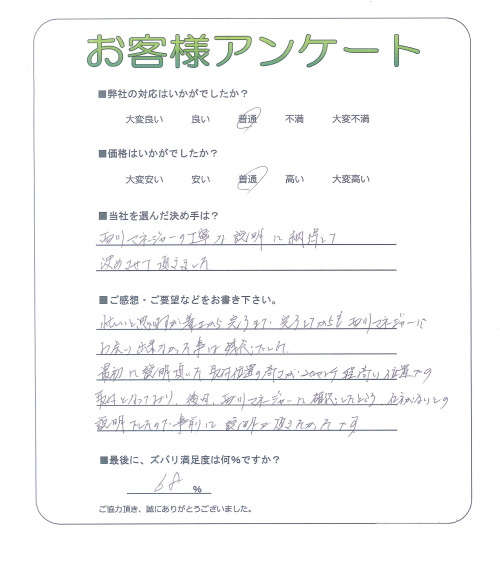 お客様アンケート
■弊社の対応はいかがでしたか？
大変良い 良い 普通 不満 大変不満
■価格はいかがでしたか？
大変安い 安い 普通 高い 大変高い
■当社を選んだ決め手は？
西川マネージャーの丁寧な説明に納得して
決めさせて頂きました
■ご感想・ご要望などをお書き下さい。
忙しいと思いますが着工から完了まで、完了してからも西川マネージャーに
最初に説明頂いた取付位置の高さが
取付となっており、後日、西川マネージャーに確認したところ仕方がないとの
説明でしたので事前に説明が頂きたかったです
■最後に、ズバリ満足度は何％ですか？
68 %
ご協力頂き、誠にありがとうございました。